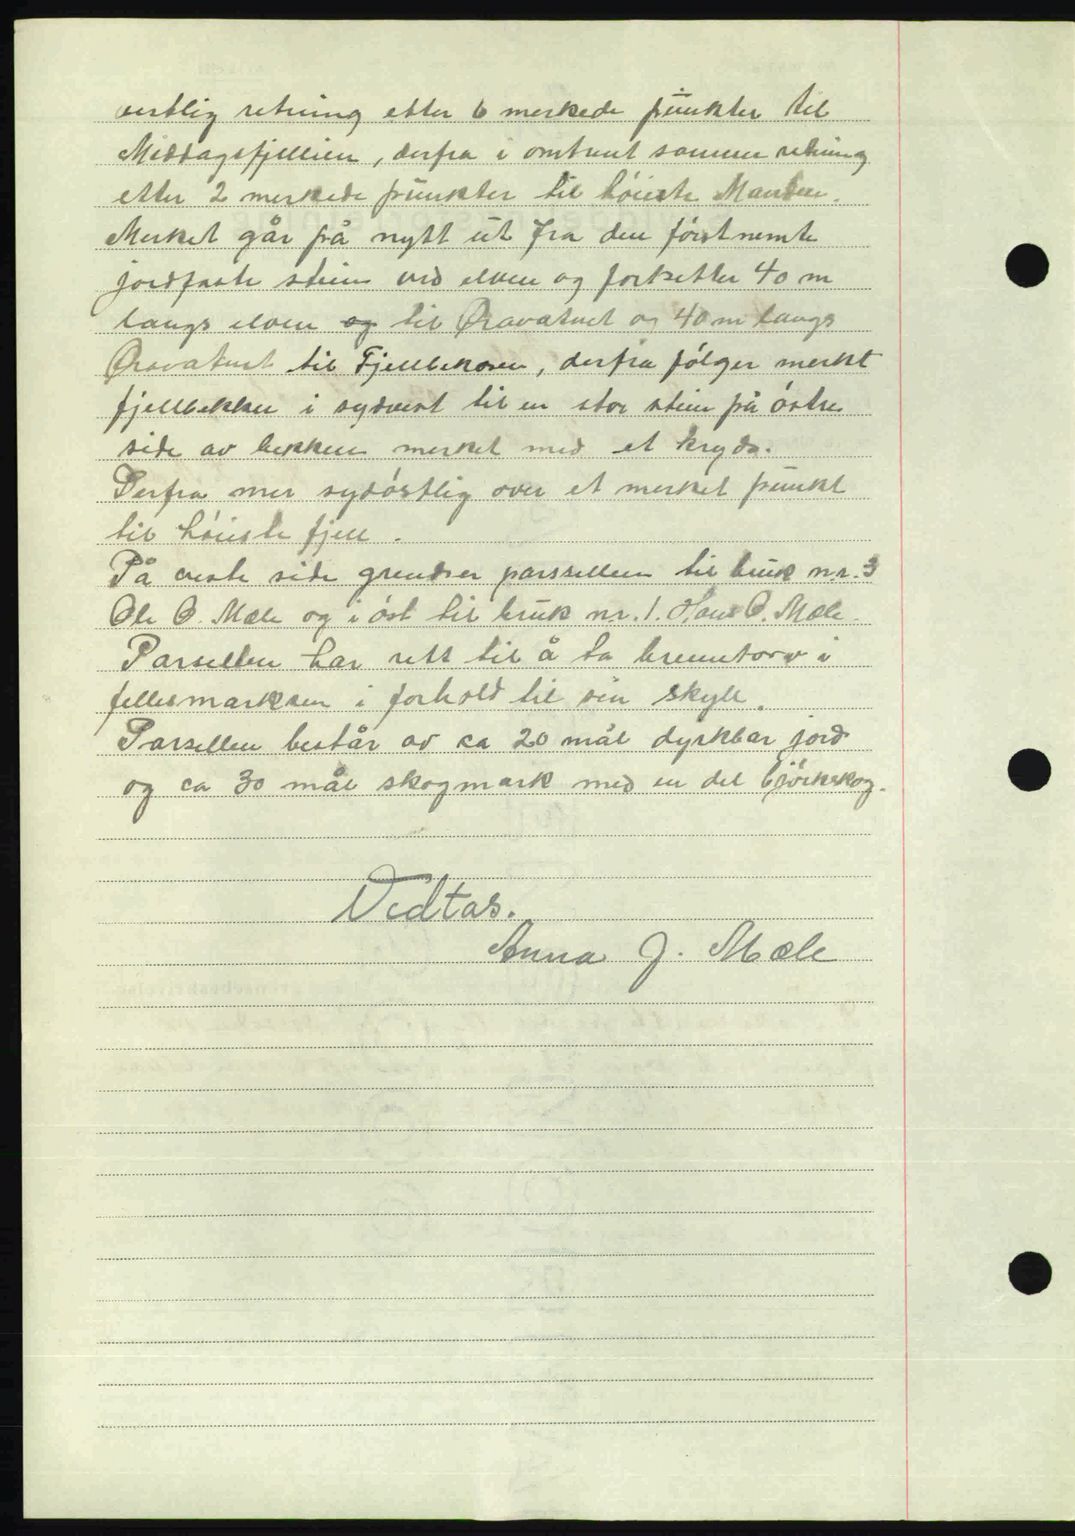 vestlig retning etter 6 merkede punkter til
Middagsfjellien, derfra i omtrent samme retning
etter 2 merkede punkter til höieste Manden.
Merket går på nytt ut fra den förstnemte
jordfaste stein ved elven og fortsetter 40 m
langs elven og til Øravatnet og 40 m langs
Øravatnet til Fjellbekosen, derfra fölger merket
fjellbekken i sydvest til en stor stein på östre
side av bekken merket med et kryds.
Derfra mer sydöstlig over et merket punkt
til höieste fjell.
På veste side grendser parssellen til bruk nr. 3
Ole O. Mæle og i öst til bruk nr. 1. Hans O. Mæle.
Parsellen har rett til å ta brenntorv i
fellesmarken i forhold til sin skyll.
Parsellen består av ca 20 mål dyrkbar jord
og ca 30 mål skogmark med en del björkskog.
Vedtas.
Anna J. Mæle